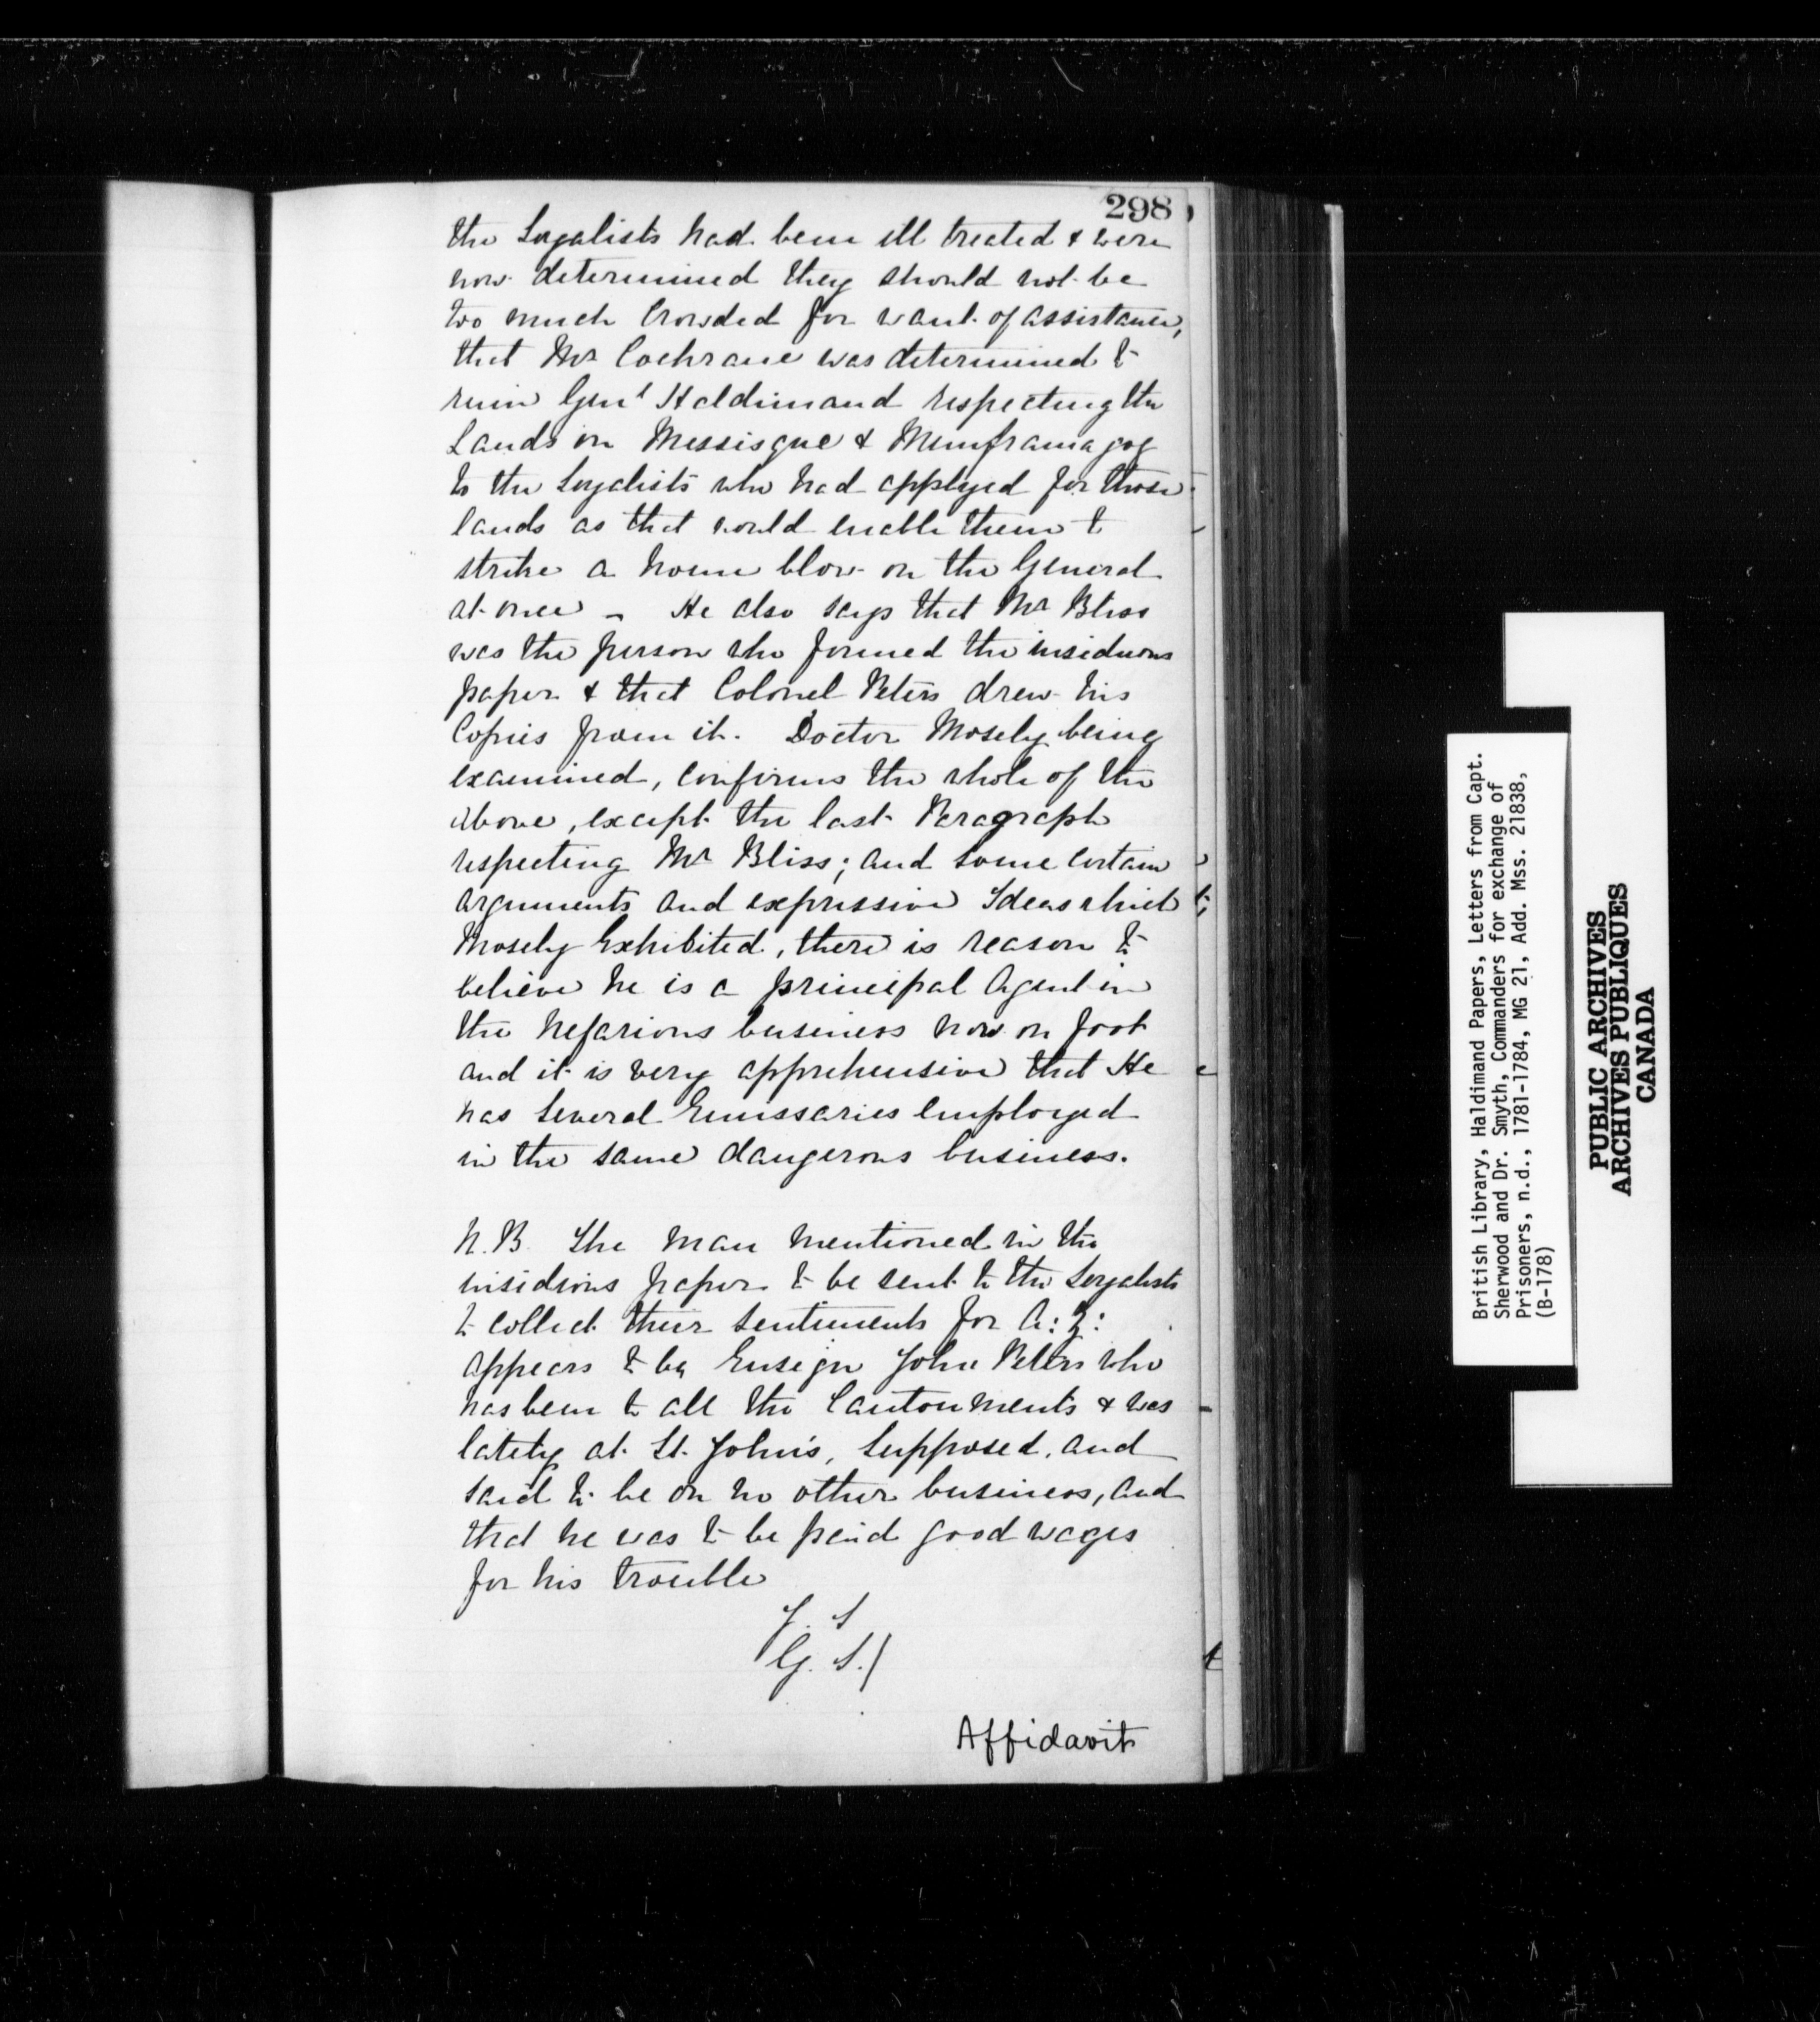 298
the Loyalists had been ill treated & were
now determined they should not be
too much Crowded for want of assistance,
that Mr Cochrane was determined to
ruin Genl Haldimand respecting the
Lands on Messisque & Memframagog
to the Loyalists who had applyed for those
lands as that would enable them to
strike a home blow on the General
at once - He also says that Mr Bliss
was the person who formed the insiduous
paper & that Colonel Peters drew his
Copies from it. Doctor Mosely being
examined, confirms the whole of the
above, except the last Paragraph
respecting Mr Bliss; and some certain
arguments and expressive Ideas which
Mosely Exhibited, there is reason to
believe he is a principal Agent in
the Nefarious business now on foot
and it is very apprehensive that He
has several Emissaries employed
in the same dangerous business.
N.B. The man mentioned in the
insidious paper to be sent to the Loyalists
to collect their sentiments for A: Z:
appears to be Ensign John Peters who
has been to all the Cantonments & was
lately at St. John's, supposed, and
said to be on no other business, and
that he was to be paid good wages
for his trouble
J. S
G. S./
Affidavit
British Library, Haldimand Papers, Letters from Capt.
Sherwood and Dr. Smyth, Commanders for exchange of
Prisoners, n.d., 1781-1784, MG 21, Add. Mss. 21838,
(B-178)
PUBLIC ARCHIVES
ARCHIVES PUBLIQUES
CANADA